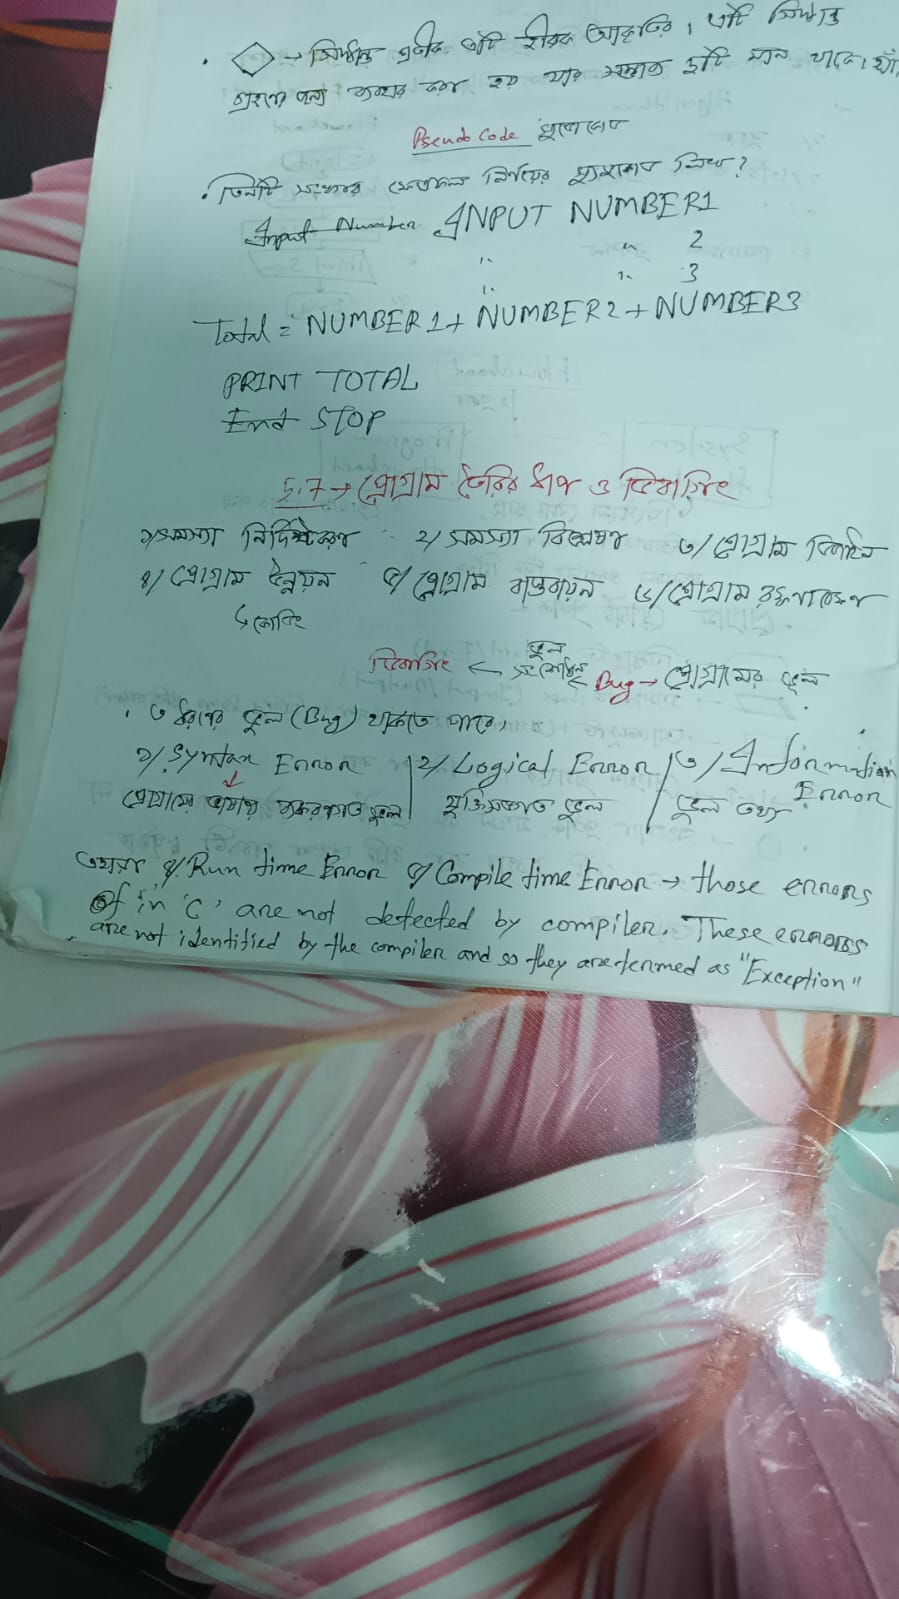 ◇ → সিদ্ধান্ত প্রতীক এটি হীরক আকৃতির। এটি সিদ্ধান্ত
গ্রহণের জন্য ব্যবহার করা হয় যার সম্ভাব্য দুটি মান থাকে। হ্যাঁ,
Pseudo Code সুডোকোড
• তিনটি সংখ্যার যোগফল নির্ণয়ের সুডোকোড লিখ?
Input Number INPUT NUMBER1
" " 2
" " 3
Total = NUMBER1 + NUMBER2 + NUMBER3
PRINT TOTAL
End STOP
5.7 → প্রোগ্রাম তৈরির ধাপ ও ডিবাগিং
১/ সমস্যা নির্দিষ্টকরণ ২/ সমস্যা বিশ্লেষণ ৩/ প্রোগ্রাম ডিজাইন
৪/ প্রোগ্রাম উন্নয়ন ৫/ প্রোগ্রাম বাস্তবায়ন ৬/ প্রোগ্রাম রক্ষণাবেক্ষণ
↳ কোডিং
ডিবাগিং ← ভুল সংশোধন Bug → প্রোগ্রামের ভুল
• ৩ ধরণের ভুল (Bug) থাকতে পারে,
১/ Syntax Error | ২/ Logical Error | ৩/ Information Error
প্রোগ্রামের ভাষার ব্যকরণগত ভুল | যুক্তিসঙ্গত ভুল | ভুল তথ্য
৪/ Run time Error ৫/ Compile time Error → those errors
Of in 'C' are not detected by compiler. These errors
are not identified by the compiler and so they are termed as "Exception"